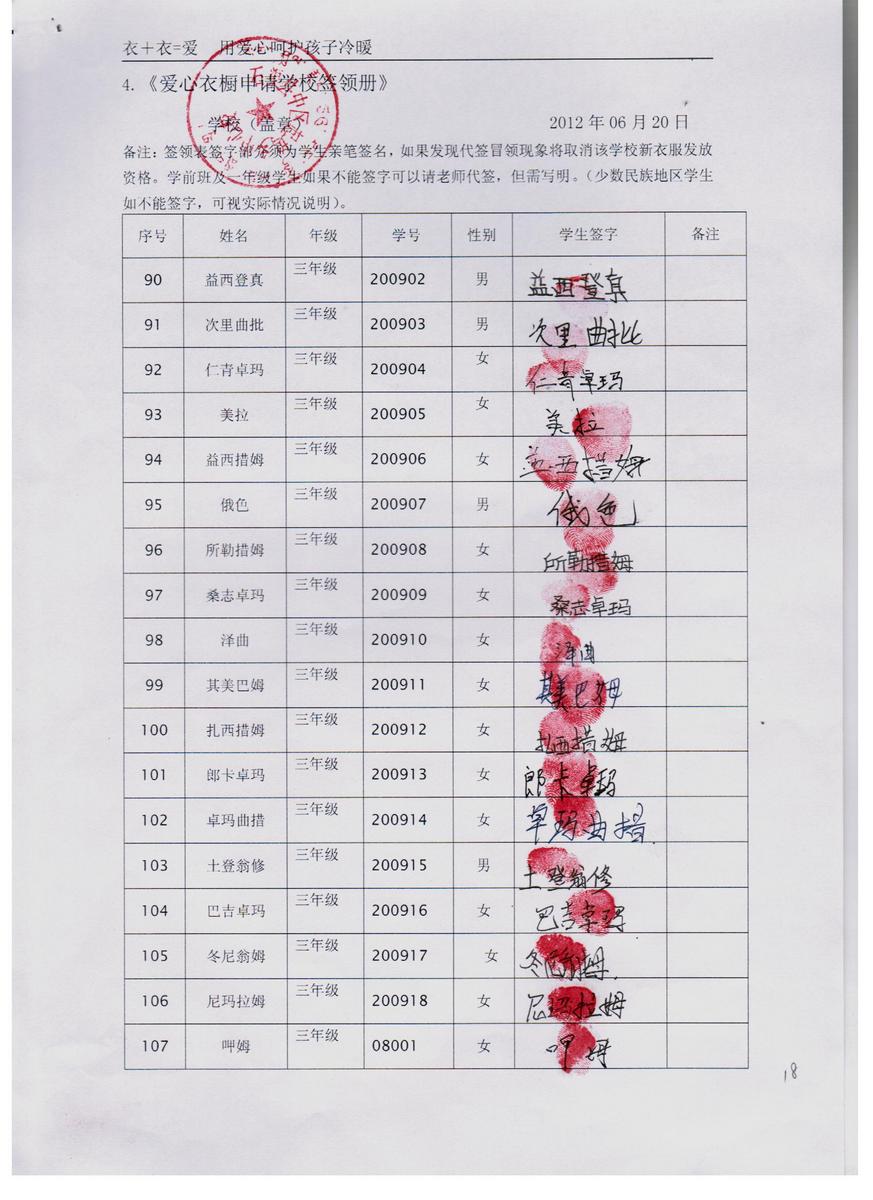 衣＋衣=爱 用爱心呵护孩子冷暖
4.《爱心衣橱申请学校签领册》
学校（盖章）
2012 年 06 月 20 日
备注：签领表签字部必须为学生亲笔签名，如果发现代签冒领现象将取消该学校新衣服发放
资格。学前班及一年级学生如果不能签字可以请老师代签，但需写明。（少数民族地区学生
如不能签字，可视实际情况说明）。
序号 姓名 年级 学号 性别 学生签字 备注
90 益西登真 三年级 200902 男 益西登真
91 次里曲批 三年级 200903 男 次里曲批
92 仁青卓玛 三年级 200904 女 仁青卓玛
93 美拉 三年级 200905 女 美拉
94 益西措姆 三年级 200906 女 益西措姆
95 俄色 三年级 200907 男 俄色
96 所勒措姆 三年级 200908 女 所勒措姆
97 桑志卓玛 三年级 200909 女 桑志卓玛
98 泽曲 三年级 200910 女 泽曲
99 其美巴姆 三年级 200911 女 其美巴姆
100 扎西措姆 三年级 200912 女 扎西措姆
101 郎卡卓玛 三年级 200913 女 郎卡卓玛
102 卓玛曲措 三年级 200914 女 卓玛曲措
103 土登翁修 三年级 200915 男 土登翁修
104 巴吉卓玛 三年级 200916 女 巴吉卓玛
105 冬尼翁姆 三年级 200917 女 冬尼翁姆
106 尼玛拉姆 三年级 200918 女 尼玛拉姆
107 呷姆 三年级 08001 女 呷姆
18